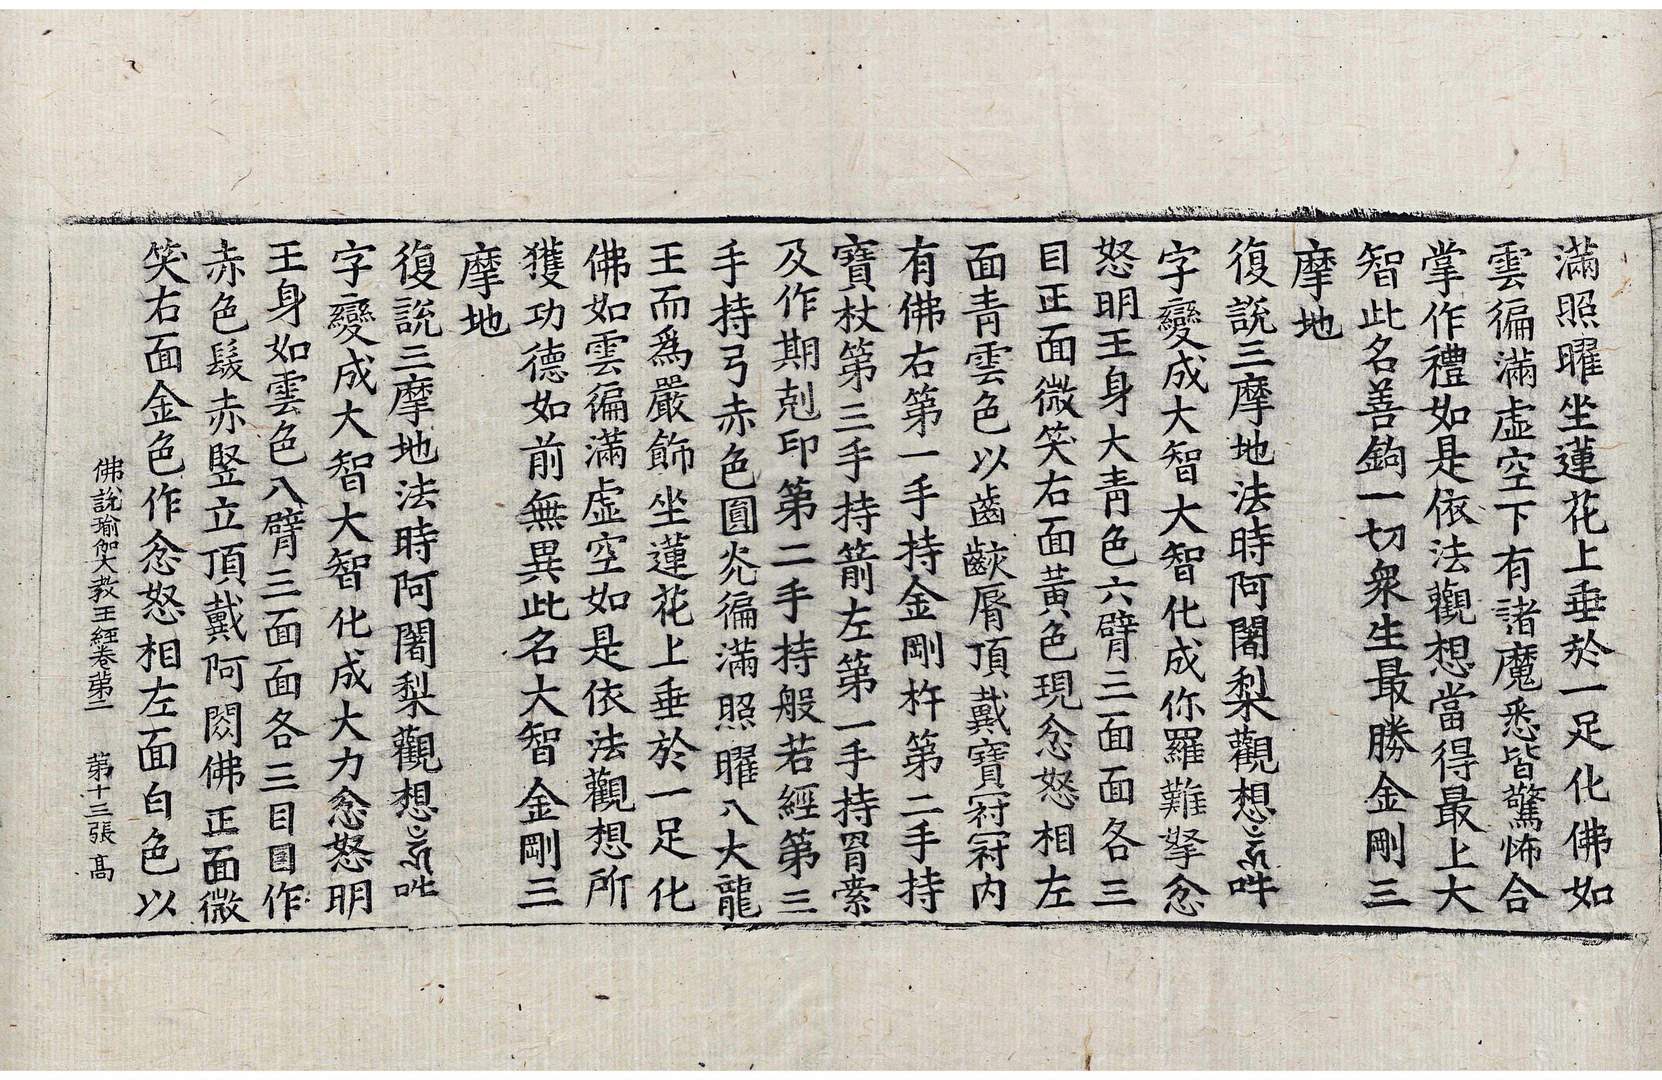 滿照曜坐蓮花上垂於一足化佛如
雲徧滿虛空下有諸魔悉皆驚怖合
掌作禮如是依法觀想當得最上大
智此名善鉤一切衆生最勝金剛三
摩地
復說三摩地法時阿闍梨觀想吽
字變成大智大智化成你羅難拏忿
怒明王身大青色六臂三面面各三
目正面微笑右面黃色現忿怒相左
面青雲色以齒齩脣頂戴寶冠冠內
有佛右第一手持金剛杵第二手持
寶杖第三手持箭左第一手持罥索
及作期剋印第二手持般若經第三
手持弓赤色圓光徧滿照曜八大龍
王而爲嚴飾坐蓮花上垂於一足化
佛如雲徧滿虛空如是依法觀想所
獲功德如前無異此名大智金剛三
摩地
復說三摩地法時阿闍梨觀想吽
字變成大智大智化成大力忿怒明
王身如雲色八臂三面面各三目目作
赤色髮赤竪立頂戴阿閦佛正面微
笑右面金色作忿怒相左面白色以
佛說瑜伽大教王經卷第二 第十三張 高